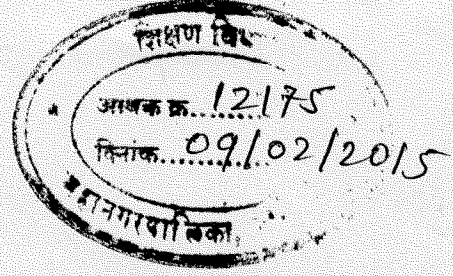 शिक्षण
आवक क्र. 12175
दिनांक. 09/02/2015
महानगरपालिका